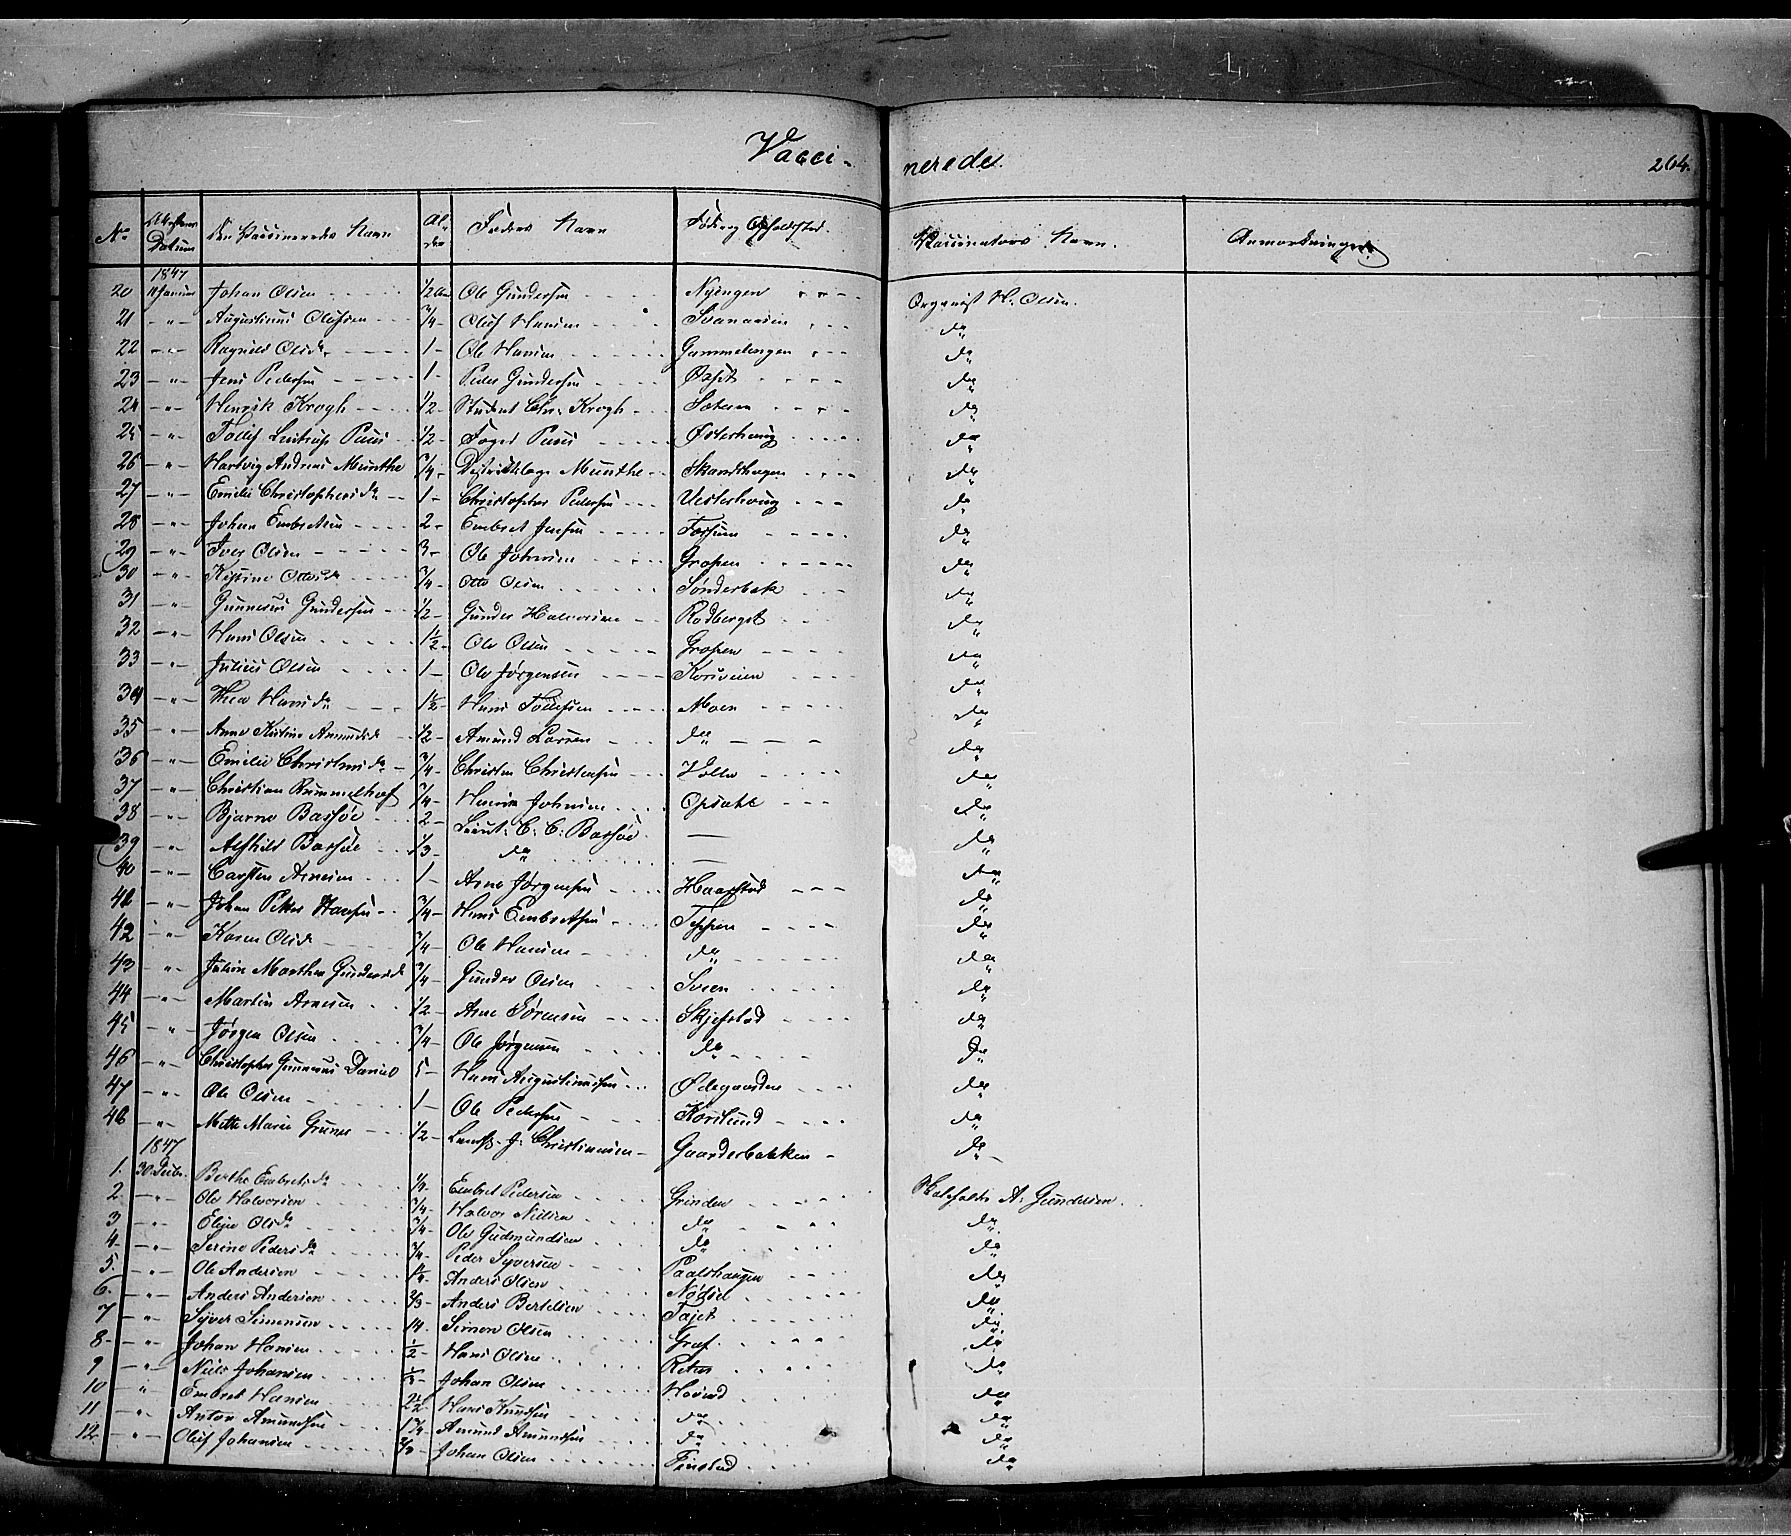 Vacci- nerede. 264.
No Attestens Datum Den Vaccineredes Navn Alder Faders Navn Føde og Opholdsted Vaccinateurs Navn. Anmærkninger.
1847
20 Januar Johan Olsen 1/2 Ole Gundersen Nyengen Organist H. Olsen.
21 -"- Augustinus Olufsen 3/4 Oluf Hansen Svanaasen do
22 -"- Ragnild Olsdr 1 Ole Hansen Gammelengen do
23 -"- Jens Pedersen 1 Peder Gundersen Øxset do
24 -"- Henrik Krogh 1/2 Student Chr. Krogh do
25 -"- Tollef Paus 1/2 Foged Paus Østerhaug do
26 -"- Hartvig Andreas Munthe 3/4 Districtslæge Munthe Skandshagen do
27 -"- Emilie Christophersdr 1 Christopher Pedersen Vesterhaug do
28 -"- Johan Embretsen 2 Embret Jensen Fossum do
29 -"- Iver Olsen 3 Ole Johnsen Grosen do
30 -"- Kristine Ottosdr 3/4 Otto Olsen Sønderbæk do
31 -"- Gunnerus Gundersen 1/2 Gunder Halvorsen Rødberget do
32 -"- Hans Olsen 1 1/2 Ole Olsen Grosen do
33 -"- Julius Olsen 1 Ole Jørgensen Korsveien do
34 -"- Thea Hansdr 1 1/2 Hans Tollefsen Moen do
35 -"- Anne Kristine Amundsdr 1/2 Amund Larsen do do
36 -"- Emilie Christensdr 3/4 Christen Christensen Volla do
37 -"- Christian Rummelhof 3/4 Henrik Johnsen Opsahl do
38 -"- Bjarne Bassøe 2 Lieut. C. C. Bassøe — do
39 -"- Alfhild Bassøe 1/3 do — do
40 -"- Carsten Arnesen 1 Arne Jørgensen Haarstad do
41 -"- Johan Petter Hansen 3/4 Hans Embretsen Teppen do
42 -"- Karen Olsdr 3/4 Ole Hansen do do
43 -"- Juline Marthea Gundersdr 3/4 Gunder Olsen Sveen do
44 -"- Martin Arnesen 1/2 Arne Sørensen Skjefstad do
45 -"- Jørgen Olsen 3/4 Ole Jørgensen do do
46 -"- Christopher Gunnerus Daniel 5 Hans Augustinussen Ødegaarden do
47 -"- Ole Olsen 1 Ole Pedersen Korslund do
48 -"- Mette Marie Grunss 1/2 J. Christiansen Gaarderbakken do
1847
1. 30 Decbr. Berthe Embretsdr 1/4 Embret Pedersen Grinden A. Gundersen.
2 -"- Ole Halvorsen 3/4 Halvor Nielsen do do
3 -"- Eline Olsdr 3/4 Ole Gudmundsen do do
4. -"- Serine Pedersdr 3/4 Peder Syversen Paalshaugen do
5. -"- Ole Andersen Anders Olsen Nødset do
6. -"- Anders Andersen 2/3 Anders Bertelsen Tajet do
7 -"- Syver Simensen 14 Simen Olsen Græf do
8 -"- Johan Hansen 1/2 Hans Olsen do
9 -"- Niels Johansen Johan Olsen Hovind do
10 -"- Embret Hansen 2 1/2 Hans Knudsen do do
11 -"- Anton Amundsen 1 3/4 Amund Amundsen do do
12 -"- Oluf Johansen 2/3 Johan Olsen Finstad do